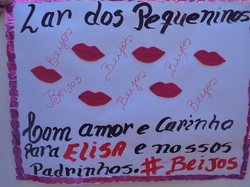 Lar dos Pequeninos
Beijos
Beijos
Beijos
Beijos
Beijos
Beijos
Com amor e Carinho
Para ELISA e nossos
Padrinhos.#Beijos